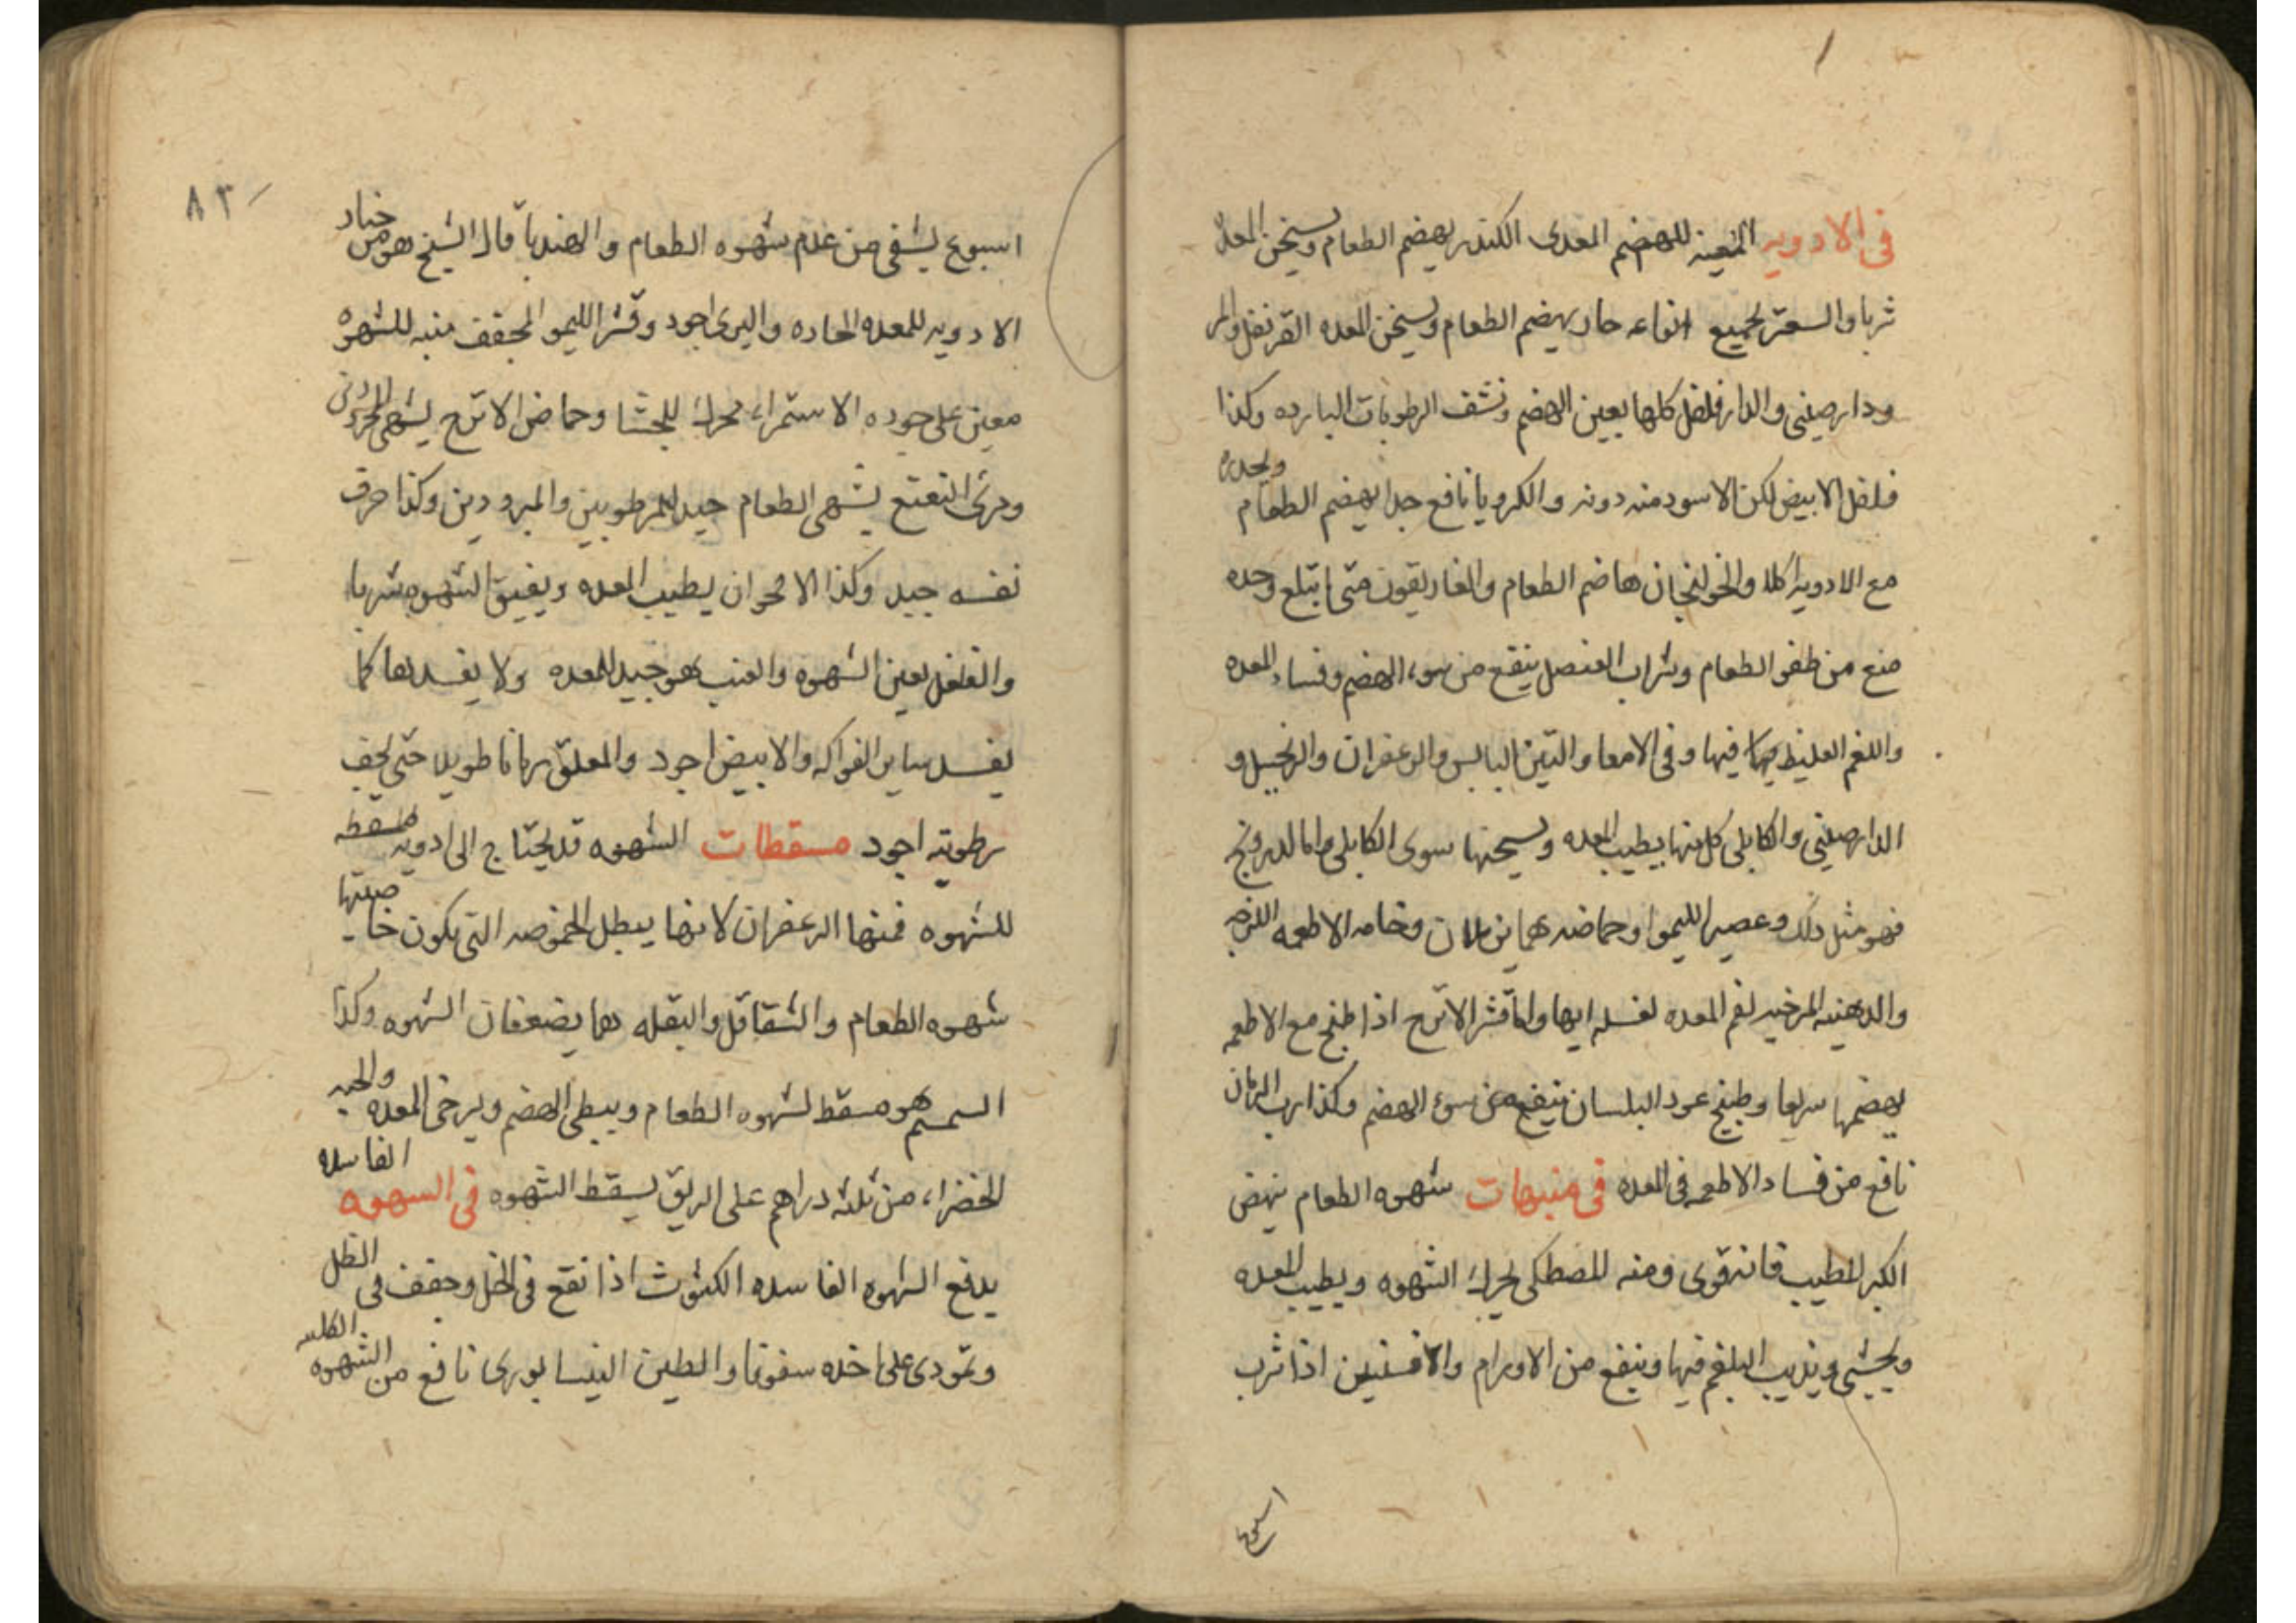 في الادويه المعينه للهضم المعدى الكندر يهضم الطعام ويسخن المعدة
شربا والسعتر لجميع انواعه حار يهضم الطعام ويسخن المعده القرنفل والمر
ودارصينى والدارفلفل كلها يعين الهضم ونشف الرطوبات البارده وكذا
فلفل الابيض لكن الاسود منه دونه والكرويا نافع جدا يهضم الطعام ويحدره
مع الادويه اكلا والخولنجان هاضم الطعام والغاريقون متى ابتلع وحده
منع من طفو الطعام وشراب العنصل ينفع من سوء الهضم وفساد المعده
واللغم الغليظ فيها وفى الامعا والتين اليابس والزعفران والزنجبيل و
الدارصينى والكابلى كل منها يطيب المعده ويسخنها سوى الكابلى واما الدرونج
فهو مثل ذلك وعصير الليموا وحماضه وخامه الاطعمه اللزجه
والدهنيه المرخيه لفم المعده لغسله ايها واما قشر الاترج اذا طبخ مع الاطعمه
يهضمها سريعا وطبيخ عود البلسان ينفع من سوء الهضم وكذا رب الرمان
نافع من فساد الاطعمه فى المعده فى منبهات شهوه الطعام ينهض
الكبر المطيب فانه قوى ومنه المصطكى يحرك الشهوه ويطيب المعده
ويجشى ويذيب البلغم فيها وينفع من الاورام والافسنتين اذا شرب
اسبوع
٨٣
اسبوع يشفى من عدم شهوه الطعام والهندبا قال الشيخ هو من خيار
الادويه للمعده الحاده والبرى اجود وقشر الليمو المجفف منبه للشهوه
معين على جوده الاستمراء محرك للجشا وحماض الاترج يشهى
ومرى النعنع يشهى الطعام جيد للمرطوبين والمبرودين وكذا حرف
نفسه جيد وكذا الاقحوان يطيب المعده ويفيق الشهوه شربا
والفلفل يعين الشهوه والعنب هو جيد للمعده ولا يفسدها كما
يفسد ساير الفواكه والابيض اجود والمعلق زمانا طويلا حتى يجف
رطوبته اجود مسقطات الشهوه قد يحتاج الى ادويه مسقطه
للشهوه فمنها الزعفران لانها يبطل الحموضه التى يكون خاصيتها
شهوه الطعام والشقاقل والبقله هما يضعفان الشهوه وكذا
السمسم هو مسقط لشهوه الطعام ويبطى الهضم ويرخى المعده والحبه
الخضراء من ثلثه دراهم على الريق يسقط الشهوه فى السهوه الفاسده
يدفع الشهوه الفاسده الكشوث اذا نقع فى الخل وجفف فى الظل
وتمودى على اخذه سفوفا والطين النيسابورى نافع من الشهوه الكلبيه